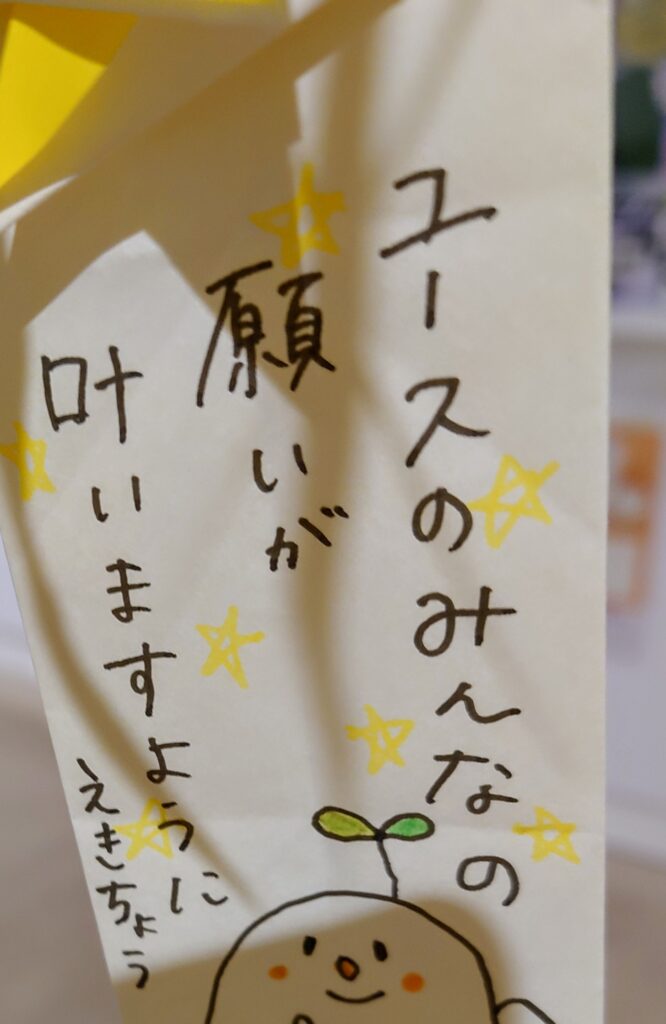 ユースのみんなの
願いが
叶いますように
えきちょう